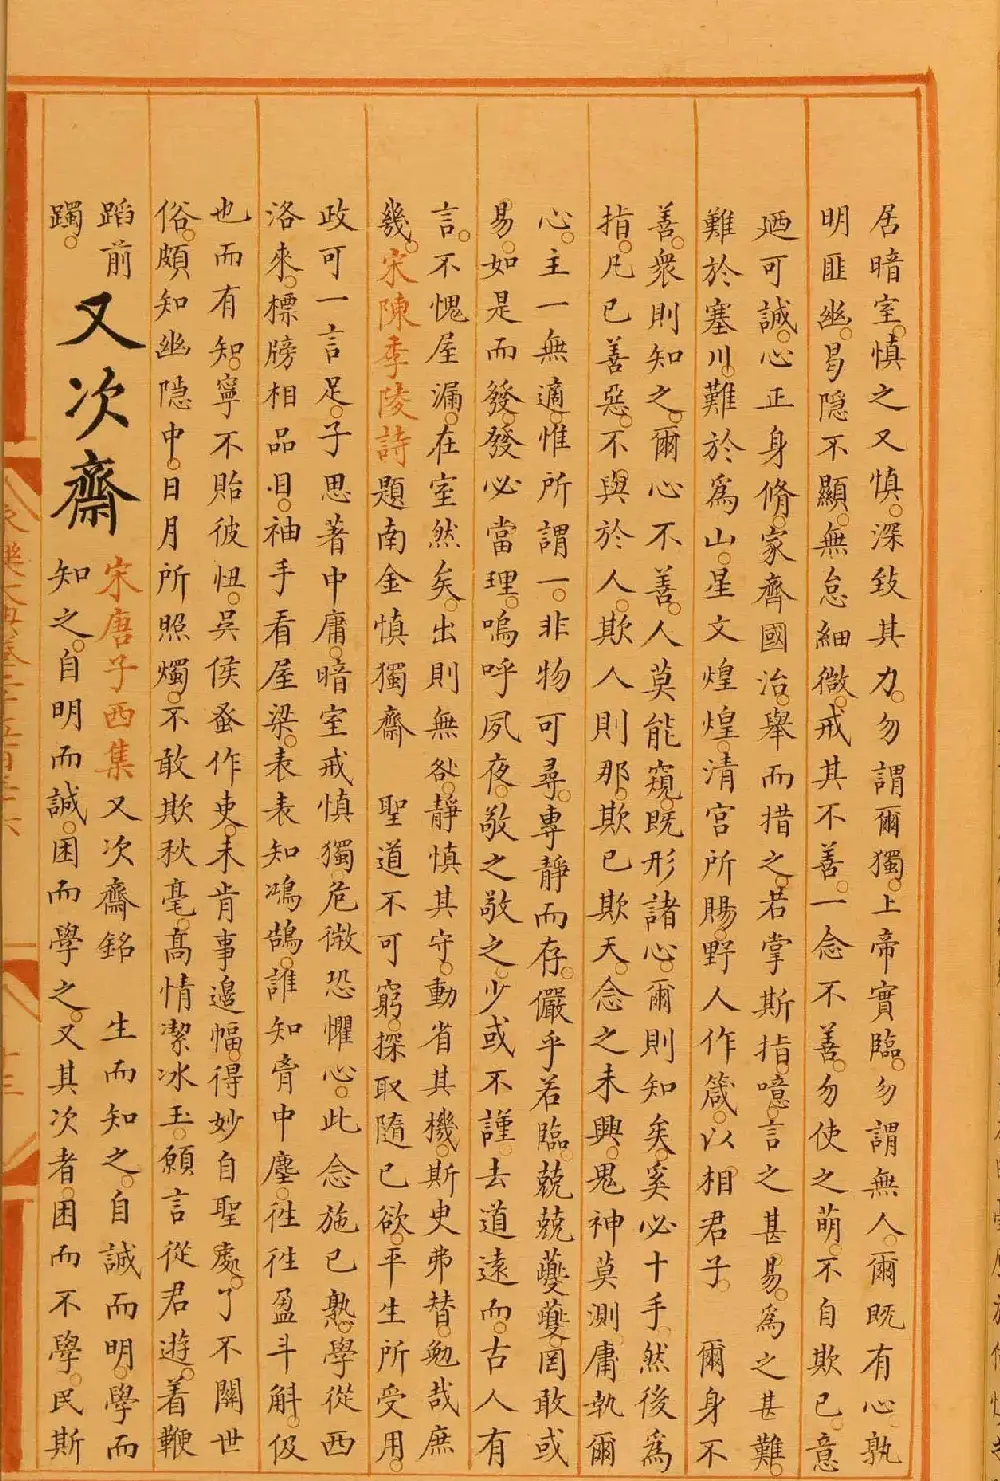 居暗室。慎之又慎。深致其力。勿謂爾獨。上帝實臨。勿謂無人。爾既有心。孰
明匪幽。曷隱不顯。無怠細微。戒其不善。一念不善。勿使之萌。不自欺已。意
迺可誠。心正身脩。家齊國治。舉而措之。若掌斯指。噫。言之甚易。為之甚難。
難於塞川。難於為山。星文煌煌。清宮所賜。野人作箴。以相君子。爾身不
善。衆則知之。爾心不善。人莫能窺。既形諸心。爾則知矣。奚必十手。然後為
指。凡已善惡。不與於人。欺人則那。欺已欺天。念之未興。鬼神莫測。庸執爾
心。主一無適。惟所謂一。非物可尋。專靜而存。儼乎若臨。兢兢夔夔。罔敢或
易。如是而發。發必當理。嗚呼夙夜。敬之敬之。少或不謹。去道遠而。古人有
言。不愧屋漏。在室然矣。出則無咎。靜慎其守。動省其機。斯史弗替。勉哉庶
幾。宋陳季陵詩題南金慎獨齋 聖道不可窮。探取隨已欲。平生所受用。
政可一言足。子思著中庸。暗室戒慎獨。危微恐懼心。此念施已熟。學從西
洛來。標牓相品目。袖手看屋梁。表表知鴻鵠。誰知膏中塵。徃徃盈斗斛。伋
也而有知。寧不貽彼忸。吳侯蚤作吏。未肯事邊幅。得妙自聖處。了不關世
俗。頗知幽隱中。日月所照燭。不敢欺秋毫。高情潔冰玉。願言從君遊。着鞭
蹈前
躅。
又次齋
宋唐子西集又次齋銘 生而知之。自誠而明。學而
知之。自明而誠。困而學之。又其次者。困而不學。民斯